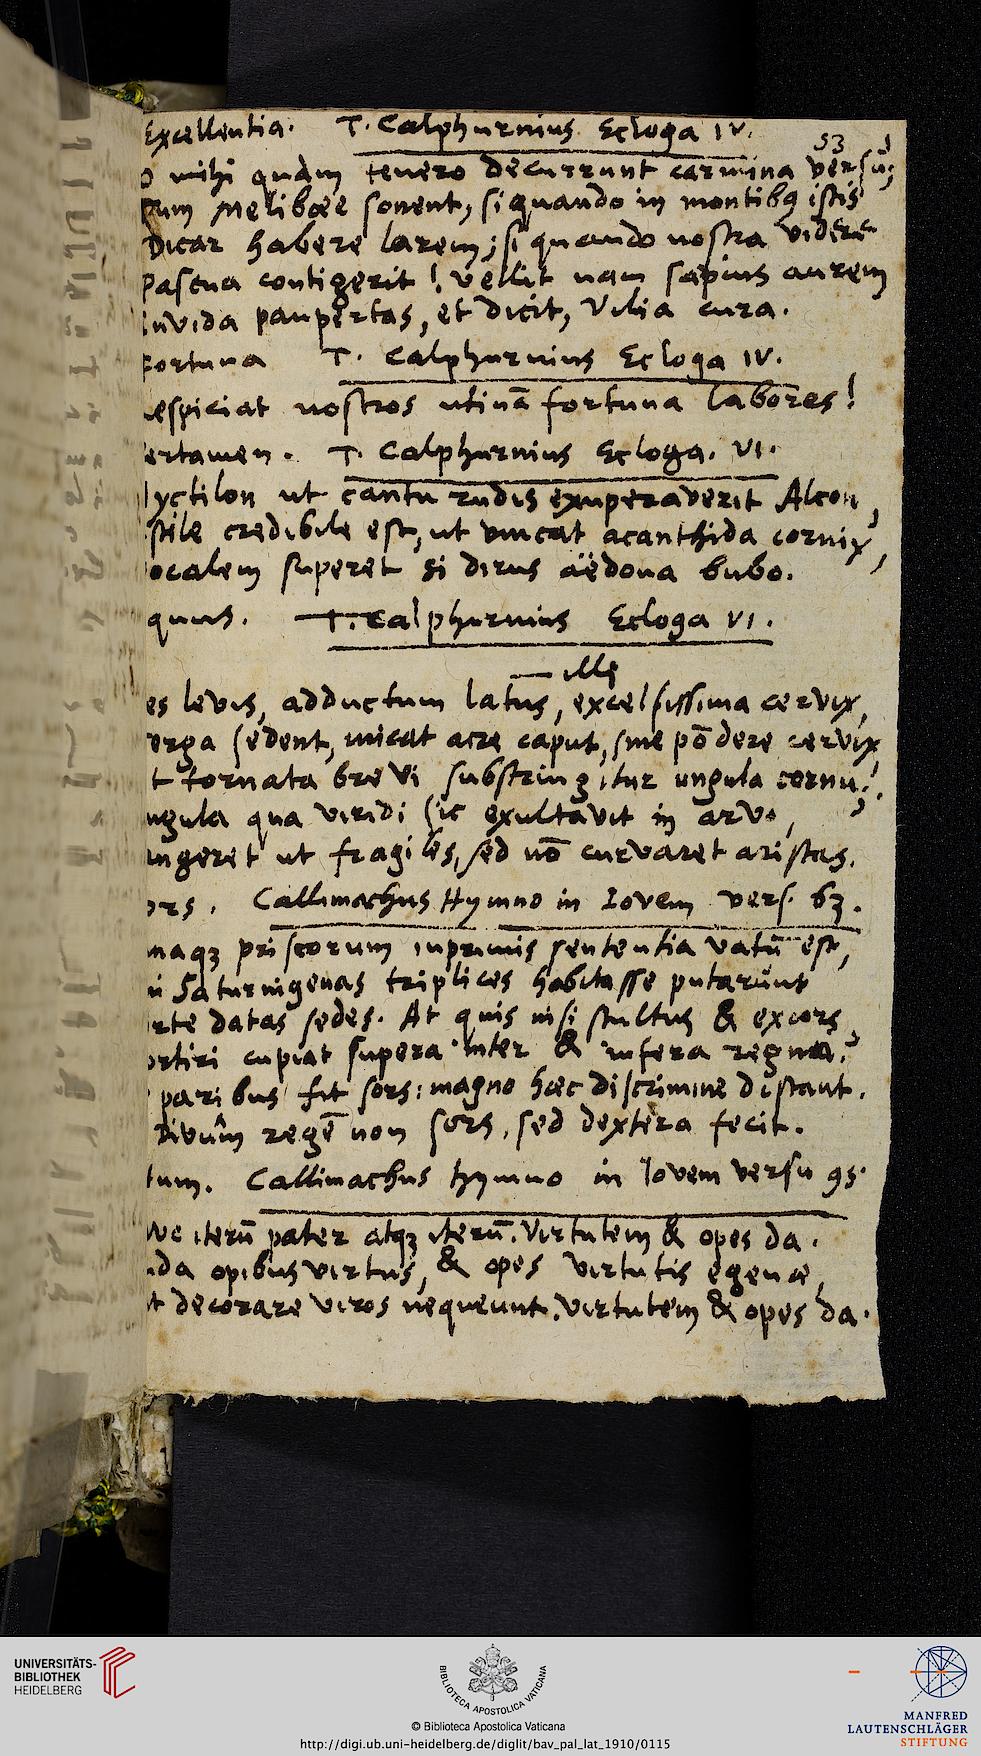 Excellentia. T. Calphurnius Ecloga IV.
53
O mihi quàm tenero decurrunt carmina versū,
Tum Melibœe sonent, si quando in montibq istis
Dicar habere larem; si quando nostra videre
Pascua contigerit! vellit nam sæpius aurem
invida paupertas, et dicit, Vilia cura.
Fortuna T. Calphurnius Ecloga IV.
respiciat nostros utinā fortuna labores!
ertamen. T. Calphurnius Ecloga. VI.
lyctilon ut cantu rudis exuperaverit Alcon,
stile credibile est, ut vincat acanthida cornix,
ocalem superet si dirus aëdona bubo.
quus. T. Calphurnius Ecloga VI.
illi
es levis, adductum latus, excelsissima cervix,
erga sedent, micat acre caput, sine pōdere cervix,
t tornata brevi substringitur ungula cornu!
ngula qua viridi sic exultavit in arvo,
angeret ut fragiles, sed nō curvaret aristas.
ors. Callimachus Hymno in Iovem vers. 63.
naqꝫ priscorum inprimis sententia vatū est,
i Saturnigenas triplices habitasse putarunt
rte datas sedes. At quis nisi stultus & excors,
ortiri cupiat supera inter & infera regna?
paribus fit sors: magno hæc discrimine distant.
Divûm regē non sors, sed dextera fecit.
tum. Callimachus hymno in Iovem versu 95.
lve iterū pater atqꝫ iterū. Virtutem & opes da.
ida opibus virtus, & opes virtutis egenæ,
t decorare viros nequeunt. Virtutem & opes da.
UNIVERSITÄTS-
BIBLIOTHEK
HEIDELBERG
BIBLIOTECA APOSTOLICA VATICANA
© Biblioteca Apostolica Vaticana
http://digi.ub.uni-heidelberg.de/diglit/bav_pal_lat_1910/0115
MANFRED
LAUTENSCHLÄGER
STIFTUNG